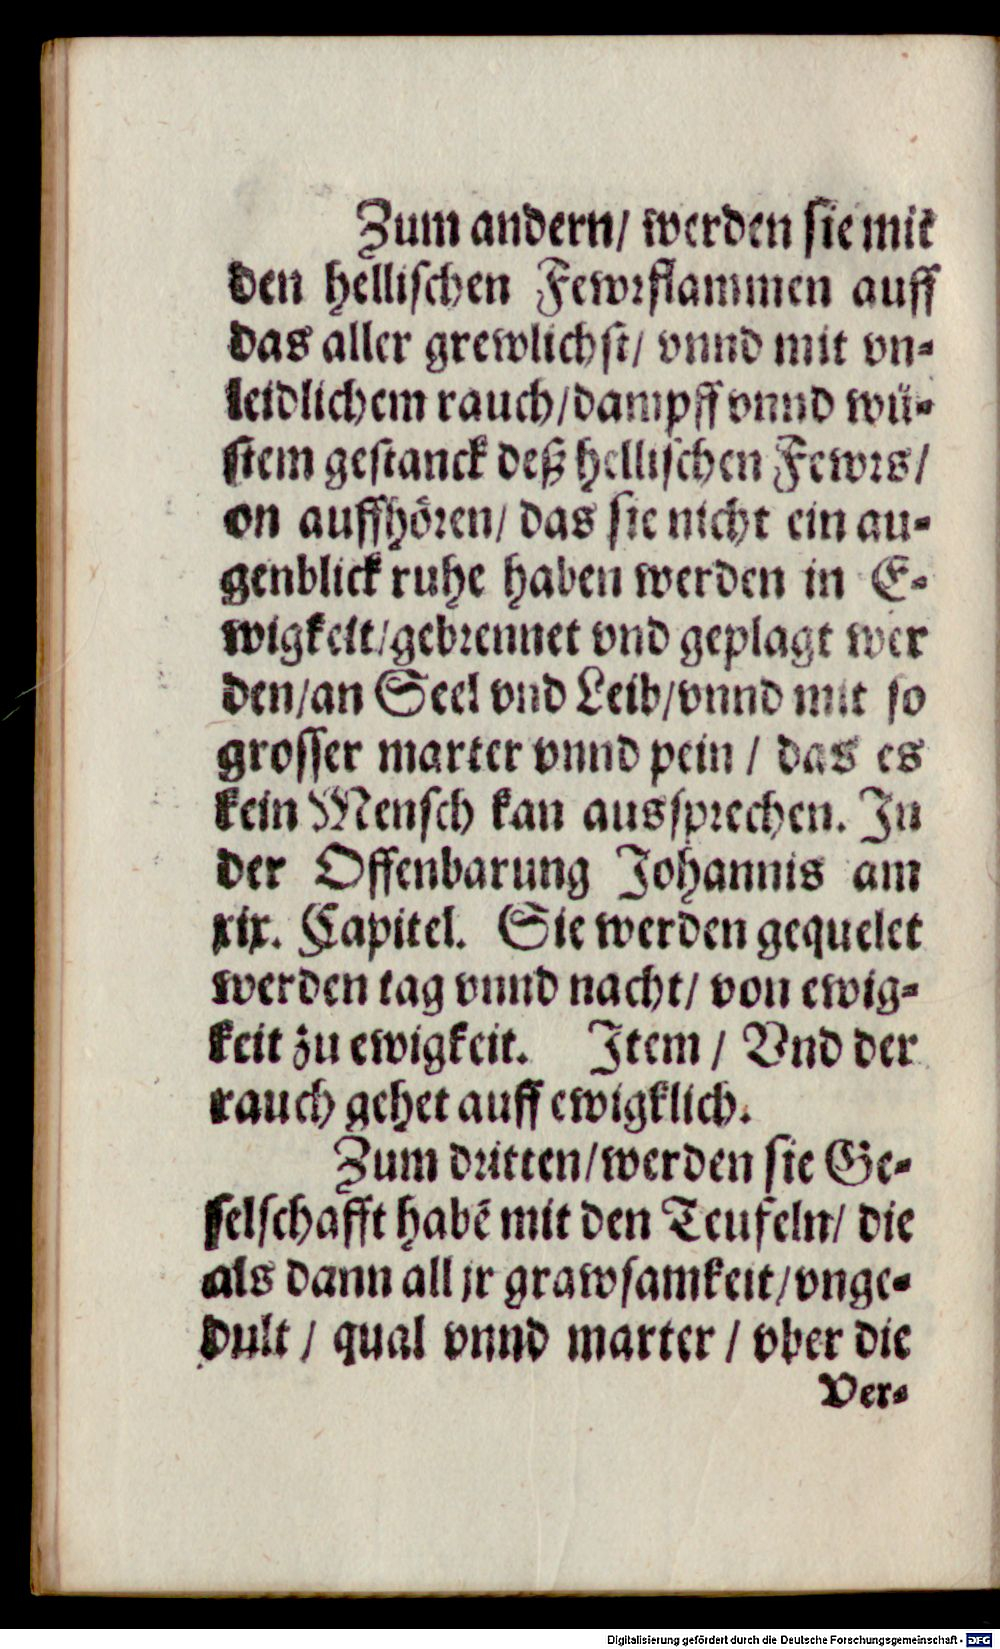 Zum andern/ werden sie mit
den hellischen Fewrflammen auff
das aller grewlichst/ vnnd mit vn-
leidlichem rauch/dampff vnnd wü-
stem gestanck deß hellischen Fewrs/
on auffhören/ das sie nicht ein au-
genblick ruhe haben werden in E-
wigkeit/gebrennet vnd geplagt wer
den/an Seel vnd Leib/vnnd mit so
grosser marter vnnd pein / das es
kein Mensch kan aussprechen. In
der Offenbarung Johannis am
xix. Capitel. Sie werden gequelet
werden tag vnnd nacht/ von ewig-
keit zu ewigkeit. Item / Vnd der
rauch gehet auff ewigklich.
Zum dritten/werden sie Ge-
selschafft habẽ mit den Teufeln/ die
als dann all jr grawsamkeit/vnge-
dult / qual vnnd marter / vber die
Ver-
Digitalisierung gefördert durch die Deutsche Forschungsgemeinschaft - DFG